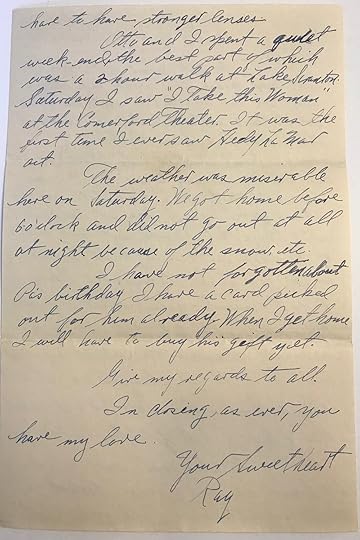 have to have stronger lenses
Otto and I spent a quiet
week end, the best part of which
was a 2 hour walk at Lake Scranton.
Saturday I saw "I Take This Woman"
at the Comerford Theater. It was the
first time I ever saw Hedy La Mar
act.
The weather was miserable
here on Saturday. We got home before
6 o'clock and did not go out at all
at night because of the snow, etc.
I have not forgotten about
birthday. I have a card picked
out for him already. When I get home
I will have to buy his gift yet.
Give my regards to all.
In closing, as ever, you
have my love.
Your Sweetheart
Ray